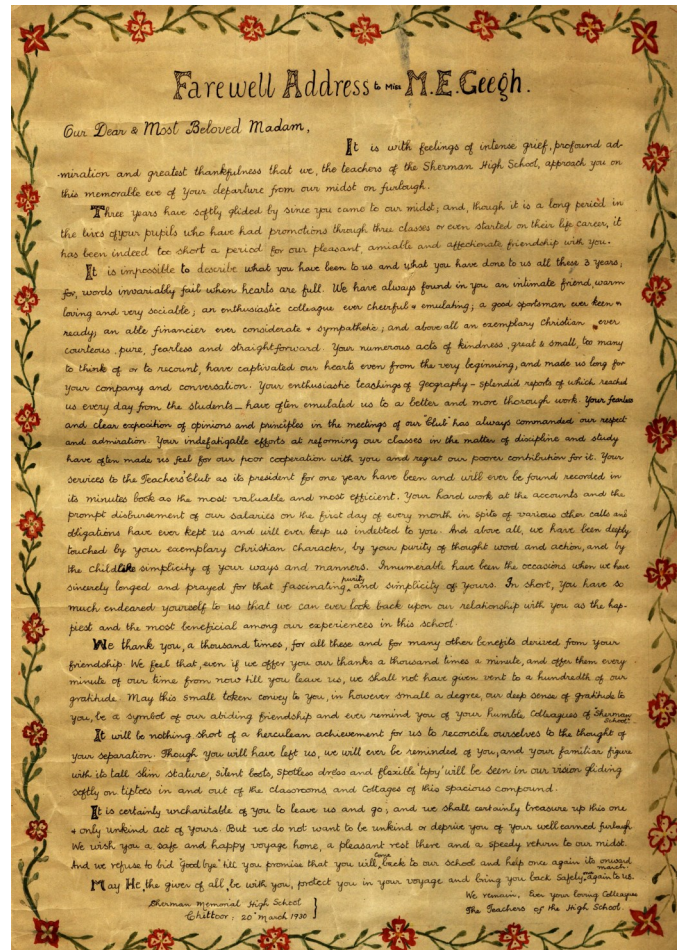 Farewell Address to Miss M.E. Geegh.
Our Dear & Most Beloved Madam,
It is with feelings of intense grief, profound ad-
-miration and greatest thankfulness that we, the teachers of the Sherman High School, approach you on
this memorable eve of your departure from our midst on furlough.
Three years have softly glided by since you came to our midst; and, though it is a long period in
the lives of your pupils who have had promotions through three classes or even started on their life career, it
has been indeed too short a period for our pleasant, amiable and affectionate friendship with you.
It is impossible to describe what you have been to us and what you have done to us all these 3 years,
for, words invariably fail when hearts are full. We have always found in you an intimate friend, warm
loving and very sociable; an enthusiastic colleague ever cheerful & emulating; a good sportsman ever keen &
ready; an able financier ever considerate & sympathetic; and above all an exemplary Christian ever
courteous, pure, fearless and straightforward. Your numerous acts of kindness, great & small, too many
to think of or to recount, have captivated our hearts even from the very beginning, and made us long for
your company and conversation. Your enthusiastic teachings of Geography - splendid reports of which reached
us every day from the students - have often emulated us to a better and more thorough work. Your fearless
and clear exposition of opinions and principles in the meetings of our 'Club' has always commanded our respect
and admiration. Your indefatigable efforts at reforming our classes in the matter of discipline and study
have often made us feel for our poor cooperation with you and regret our poorer contribution for it. Your
services to the Teachers' Club as its president for one year have been and will ever be found recorded in
its minutes book as the most valuable and most efficient. Your hard work at the accounts and the
prompt disbursement of our salaries on the first day of every month in spite of various other calls and
obligations have ever kept us and will ever keep us indebted to you. And above all, we have been deeply
touched by your exemplary Christian character, by your purity of thought word and action, and by
the childlike simplicity of your ways and manners. Innumerable have been the occasions when we have
sincerely longed and prayed for that fascinating purity and simplicity of yours. In short, you have so
much endeared yourself to us that we can ever look back upon our relationship with you as the hap-
piest and the most beneficial among our experiences in this school.
We thank you, a thousand times, for all these and for many other benefits derived from your
friendship. We feel that, even if we offer you our thanks a thousand times a minute, and offer them every
minute of our time from now till you leave us, we shall not have given vent to a hundredth of our
gratitude. May this small token convey to you, in however small a degree, our deep sense of gratitude to
you, be a symbol of our abiding friendship and ever remind you of your humble Colleagues of Sherman School.
It will be nothing short of a herculean achievement for us to reconcile ourselves to the thought of
your separation. Though you will have left us, we will ever be reminded of you, and your familiar figure
with its tall slim stature, silent boots, spotless dress and flexible 'topy' will be seen in our vision gliding
softly on tiptoes in and out of the classrooms, and Cottages of this spacious compound.
It is certainly uncharitable of you to leave us and go; and we shall certainly treasure up this one
& only unkind act of yours. But we do not want to be unkind or deprive you of your well earned furlough
We wish you a safe and happy voyage home, a pleasant rest there and a speedy return to our midst.
And we refuse to bid 'Good bye' till you promise that you will come back to our school and help once again its onward march.
May He, the giver of all, be with you, protect you in your voyage and bring you back safely again to us.
We remain, Ever your loving Colleagues
The Teachers of the High School.
Sherman Memorial High School
Chittoor, 20th March 1930